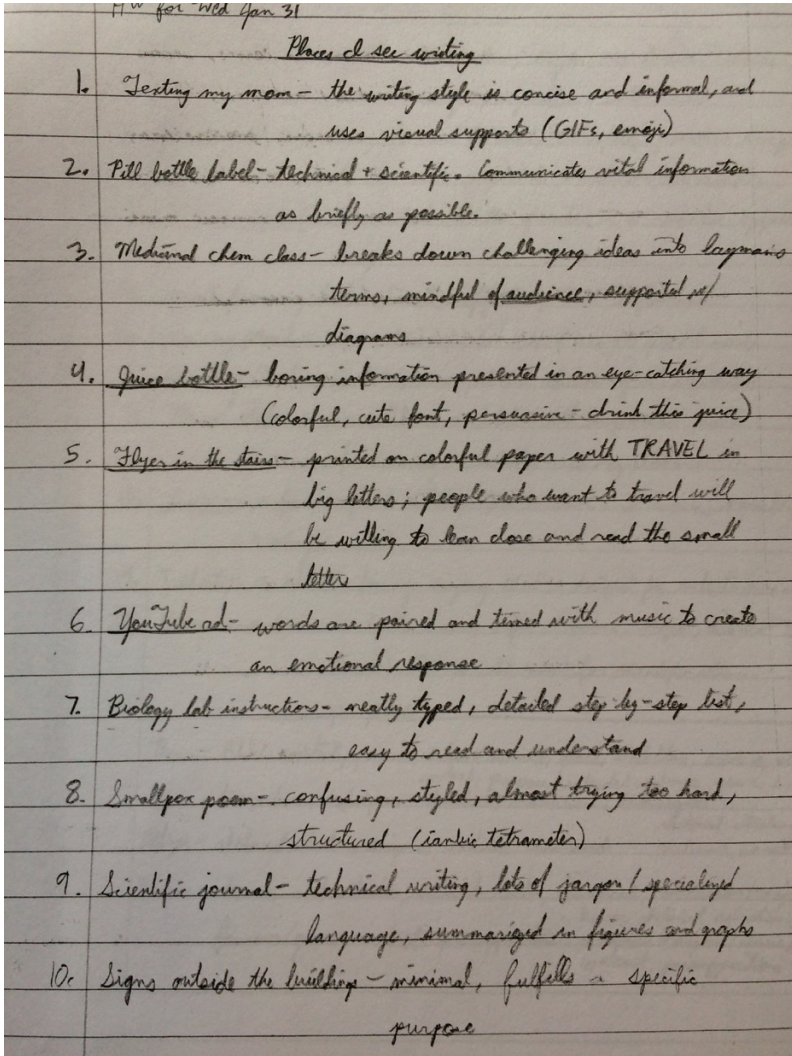 HW for Wed Jan 31
Places I see writing
1. Texting my mom - the writing style is concise and informal, and
uses visual supports (GIFs, emoji)
2. Pill bottle label - technical + scientific. Communicates vital information
as briefly as possible.
3. Medicinal chem class - breaks down challenging ideas into laymans
terms, mindful of audience, supported w/
diagrams
4. Juice bottle - boring information presented in an eye-catching way
(colorful, cute font, persuasive - drink this juice)
5. Flyer in the stairs - printed on colorful paper with TRAVEL in
big letters; people who want to travel will
be willing to lean close and read the small
letters
6. YouTube ad - words are paired and timed with music to create
an emotional response
7. Biology lab instructions - neatly typed, detailed step-by-step list,
easy to read and understand
8. Smallpox poem - confusing, styled, almost trying too hard,
structured (iambic tetrameter)
9. Scientific journal - technical writing, lots of jargon / specialized
language, summarized in figures and graphs
10. Signs outside the buildings - minimal, fulfills a specific
purpose